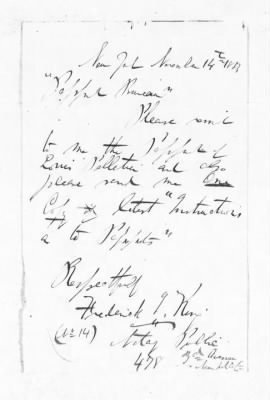 New York November 14th 18
"Passport Bureau"
Please send
to me the Passport of
Louis Pelletier and also
please send me one
Copy of latest "Instructions
as to Passports"
Respectfully
Frederick
(No 14) Notary Public
478 9th Avenue
New York City